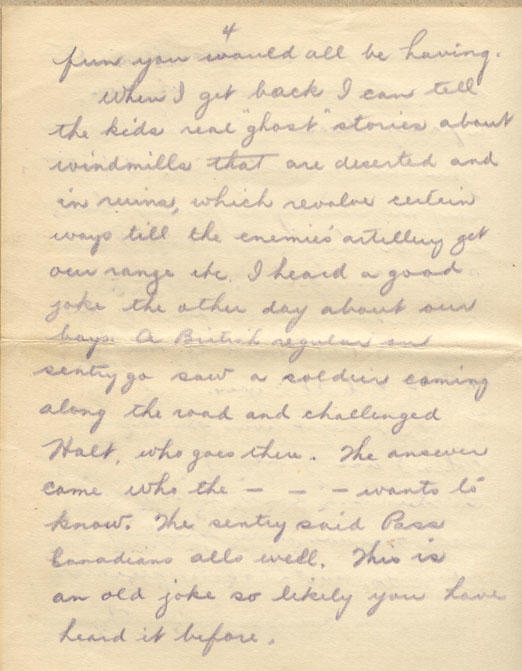 4
fun you would all be having.
When I get back I can tell
the kids real "ghost" stories about
windmills that are deserted and
in ruins, which revolve certein
ways till the enemies' artillery get
our range etc. I heard a good
joke the other day about our
boys. A British regular on
sentry go saw a soldier coming
along the road and challenged
Halt, who goes there. The answer
came who the - - - wants to
know. The sentry said Pass
Canadians alls well. This is
an old joke so likely you have
heard it before.